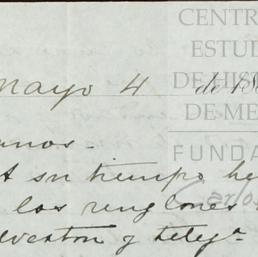 CENTR
ESTUD
DE HIS
DE ME
FUNDA
Carlos
Mayo 4 de 18
anos.-
A su tiempo he
los renglones
lveston y telegª